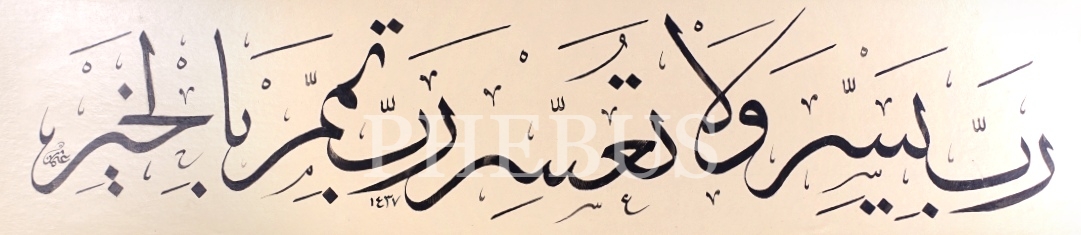 رَبِّ يَسِّرْ وَلَا تُعَسِّرْ رَبِّ تَمِّمْ بِالْخَيْرِ
١٤٣٧
PHEBUS